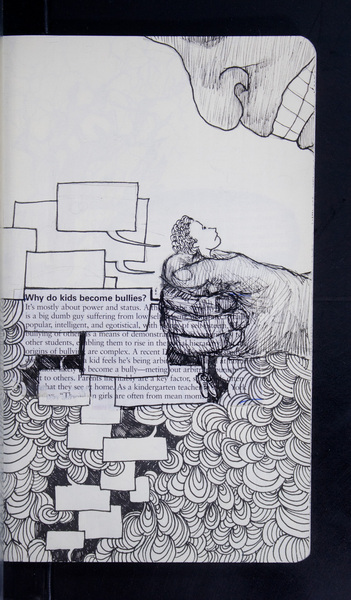 Why do kids become bullies?
It's mostly about power and status. A
is a big dumb guy suffering from low sel
popular, intelligent, and egotistical, with
bullying of others as a means of
other students, enabling them to rise in the
origins of bully are complex. A recent
kid feels he's being arbi
become a bully—meting out arbi
to others. Parents are a key factor,
hat they see at home. As a kindergarten teache York
girls are often from mean mom